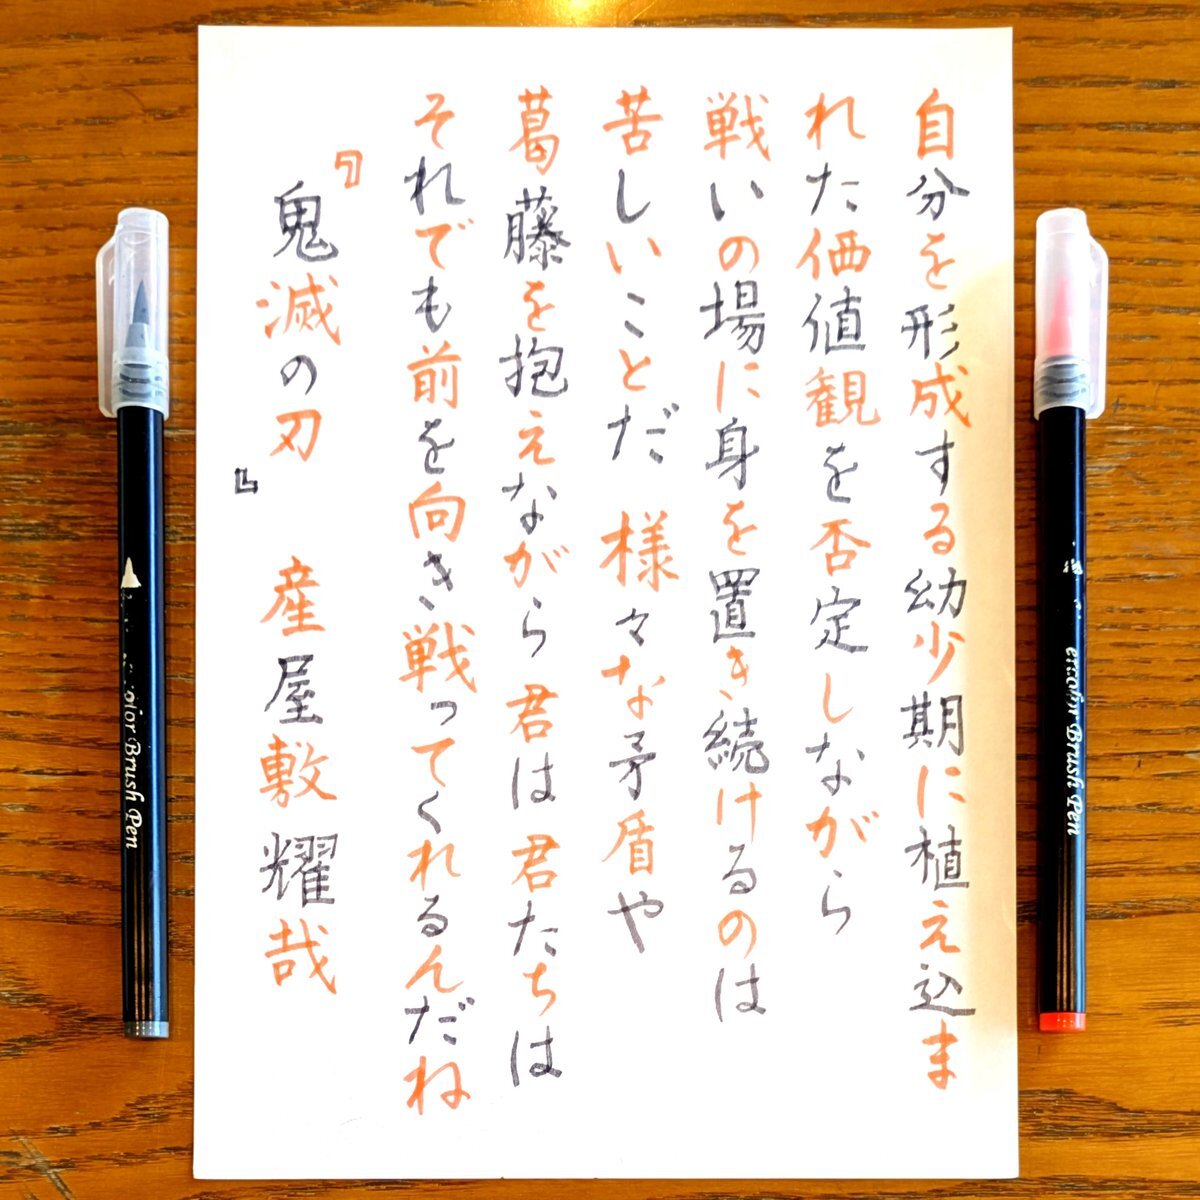 自分を形成する幼少期に植え込ま
れた価値観を否定しながら
戦いの場に身を置き続けるのは
苦しいことだ 様々な矛盾や
葛藤を抱えながら 君は君たちは
それでも前を向き戦ってくれるんだね
『鬼滅の刃』 産屋敷耀哉
olor Brush Pen
Brush Pen